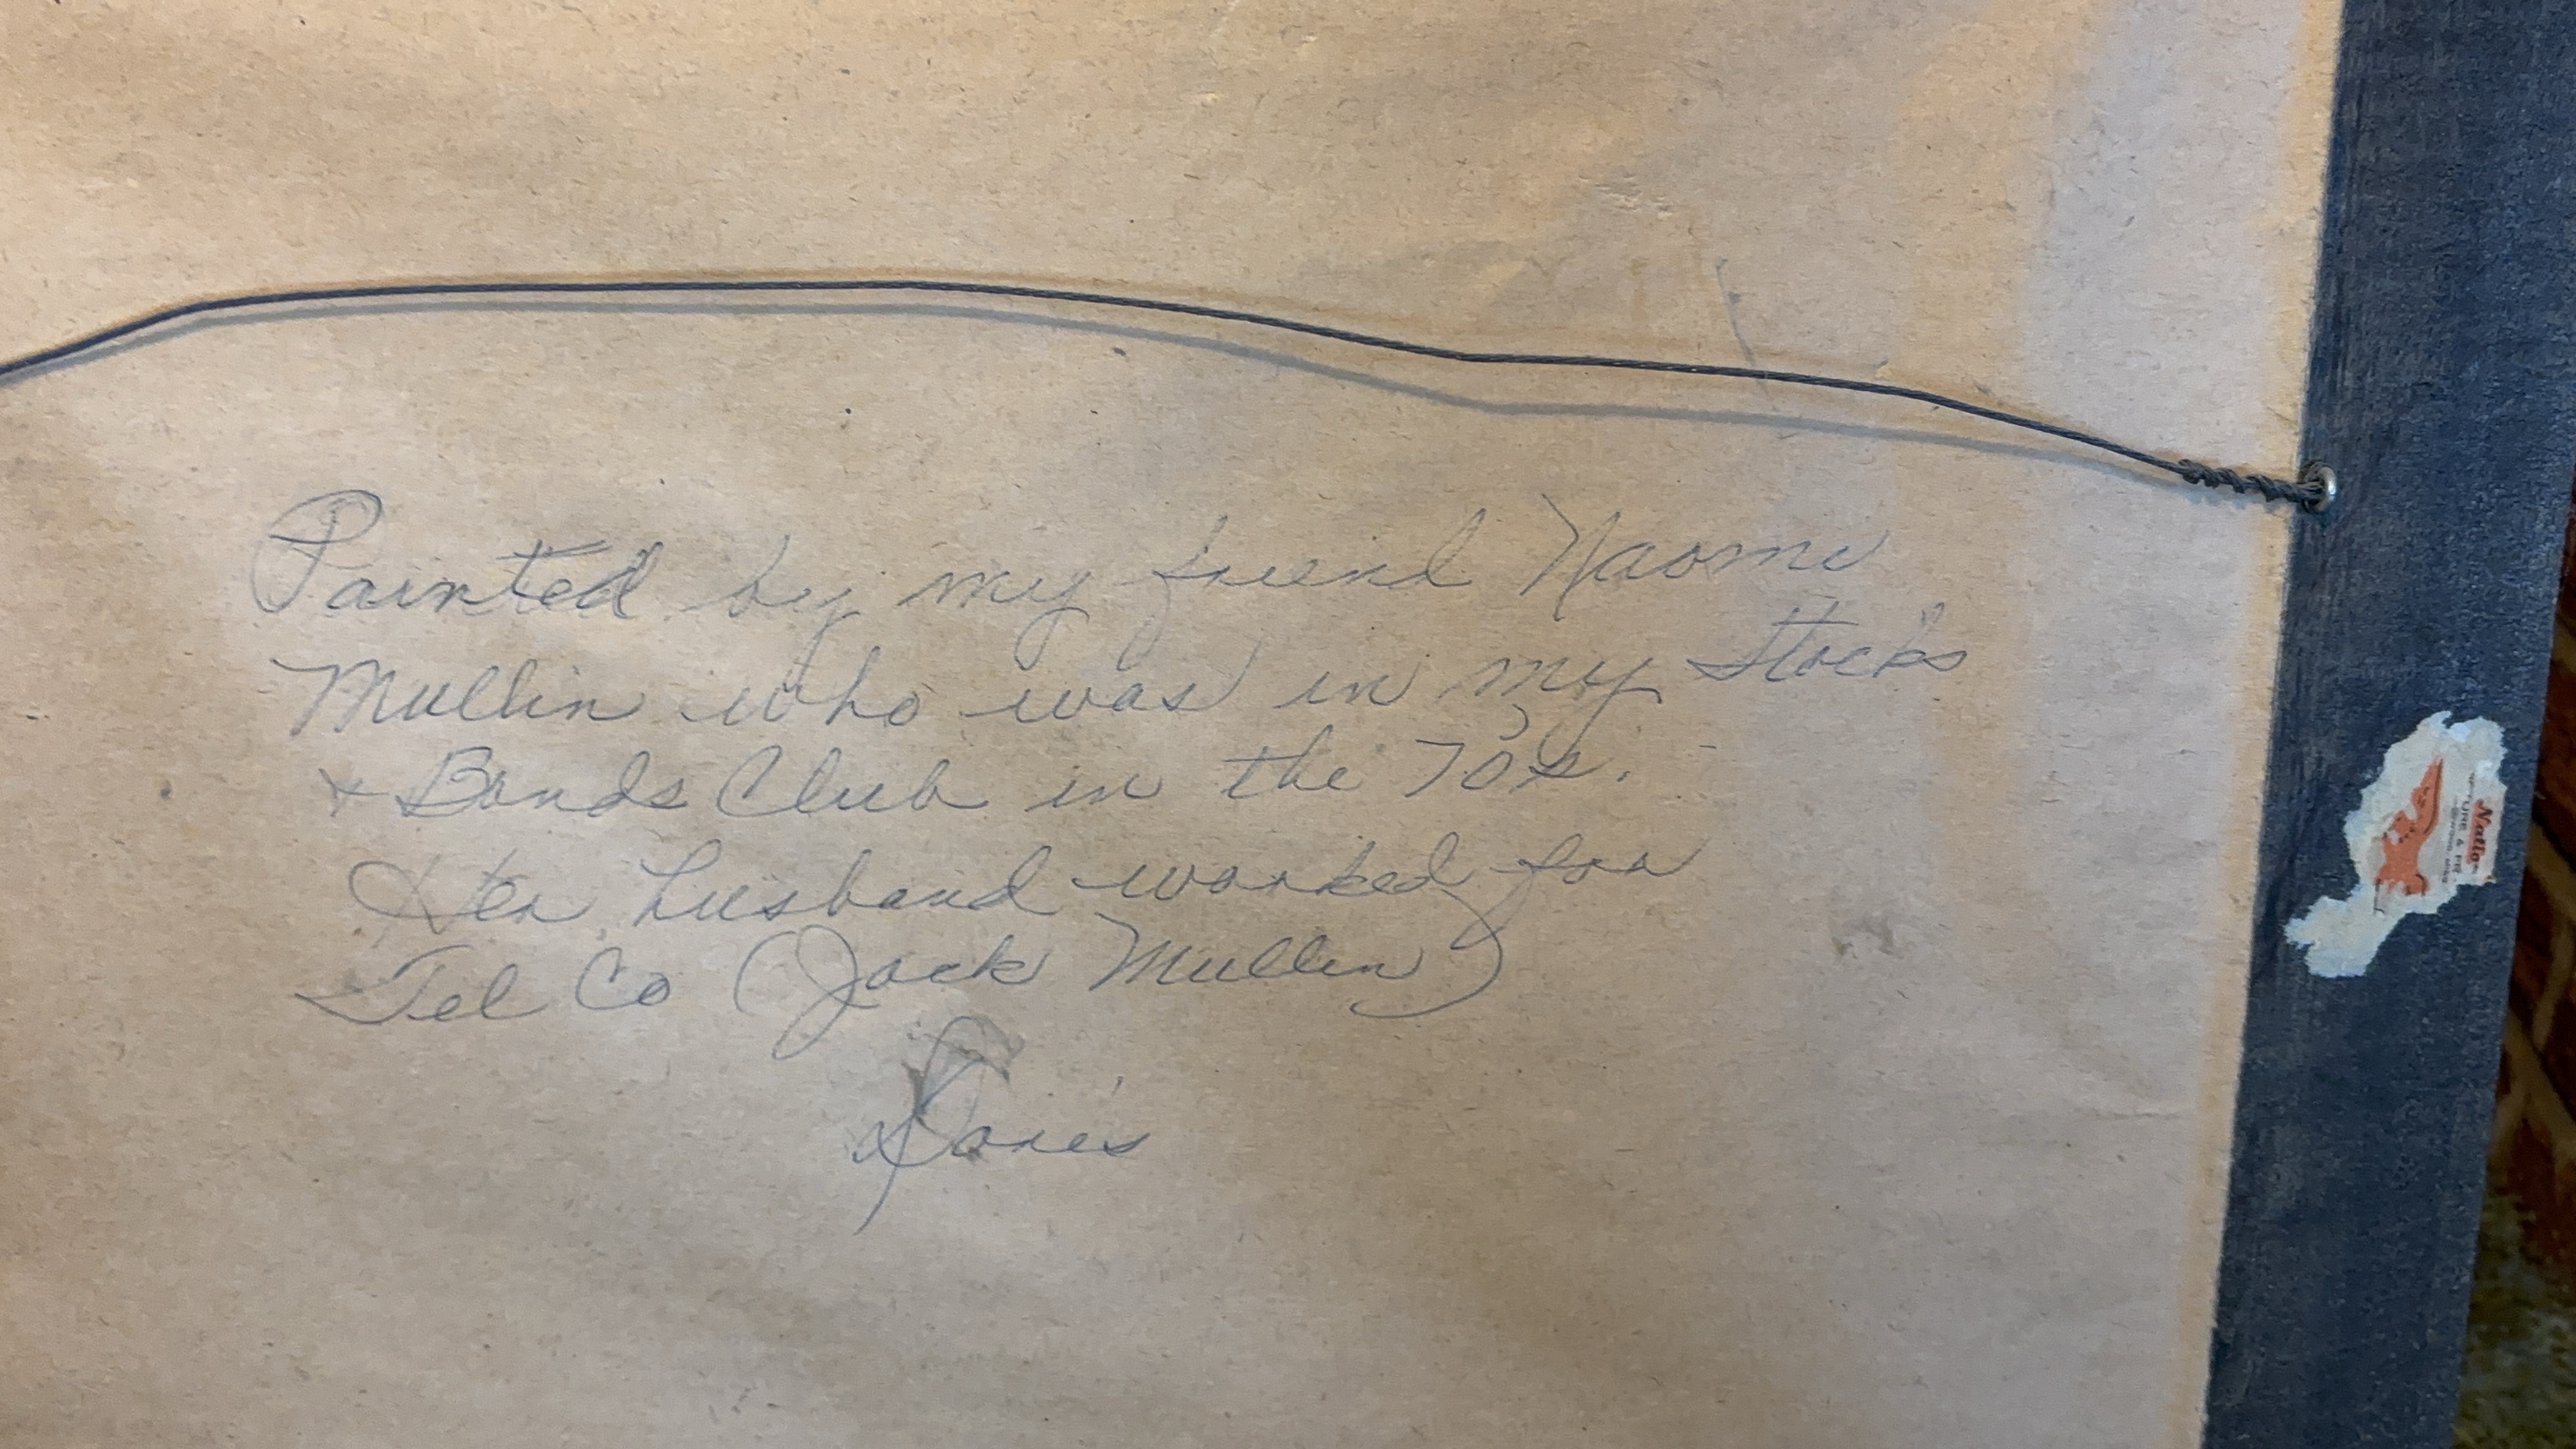 Painted by my friend Naomi
Mullin who was in my Stocks
& Bonds Club in the 70's.
Her husband worked for
Tel Co (Jack Mullin)
Doris